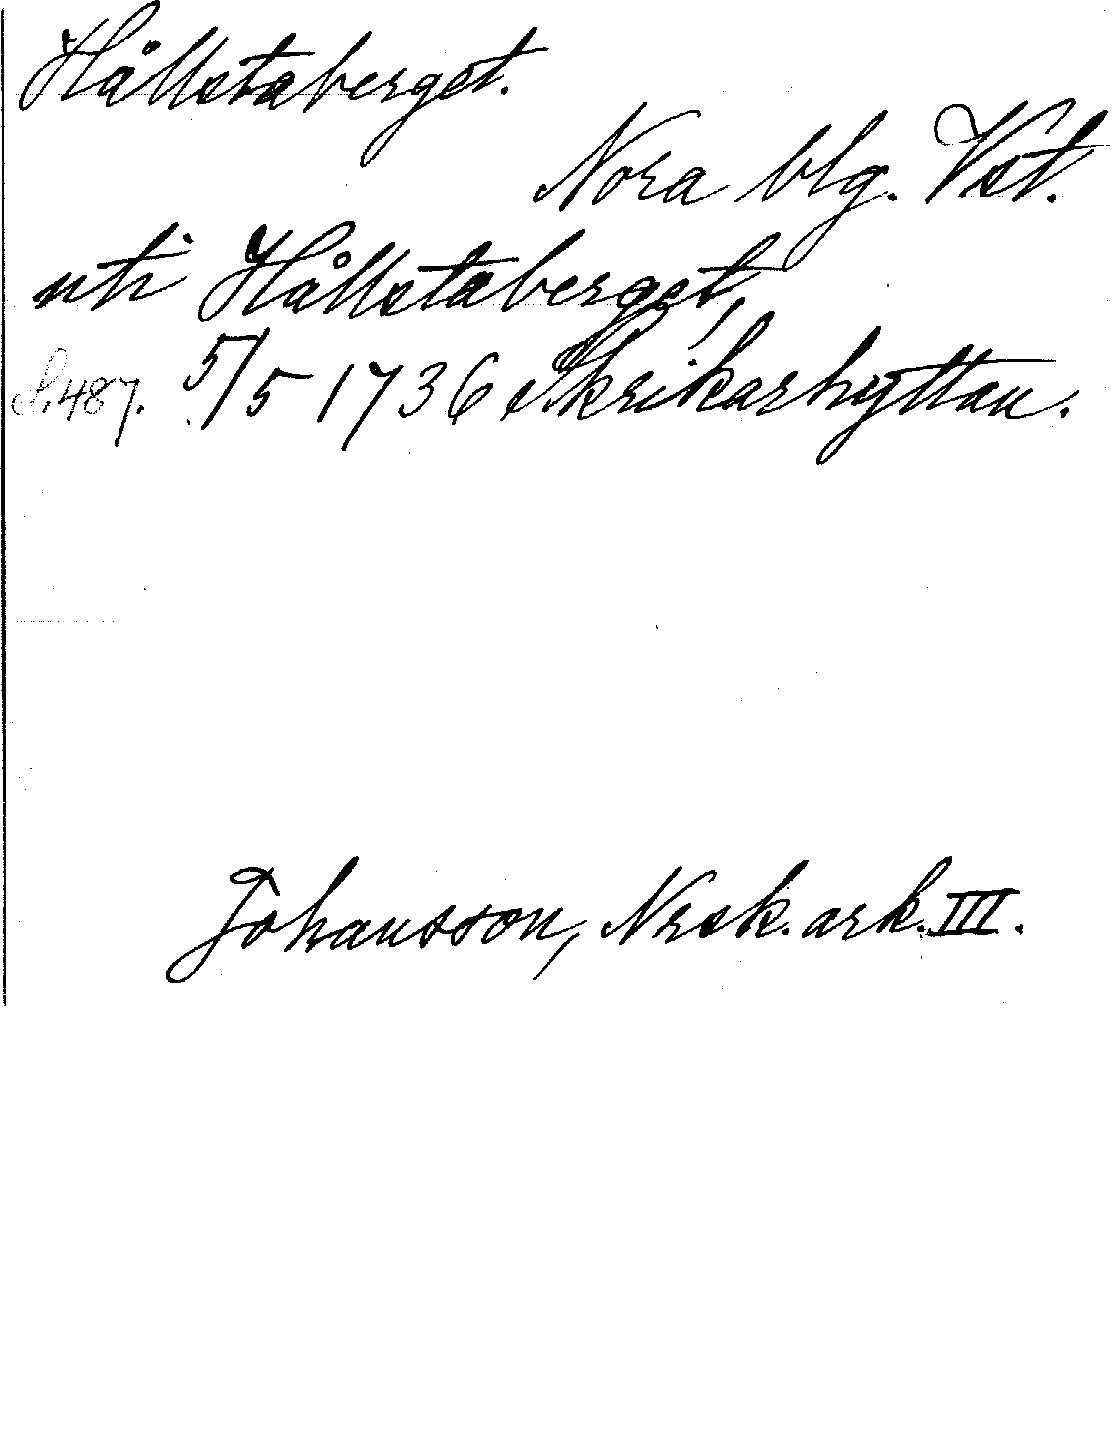 Hållstaberget.
Nora blg. Vst.
uti Hållstaberget,
S. 487. 5/5 1736 Skrikarhyttan.
Johansson, Nrsk. ark. III.